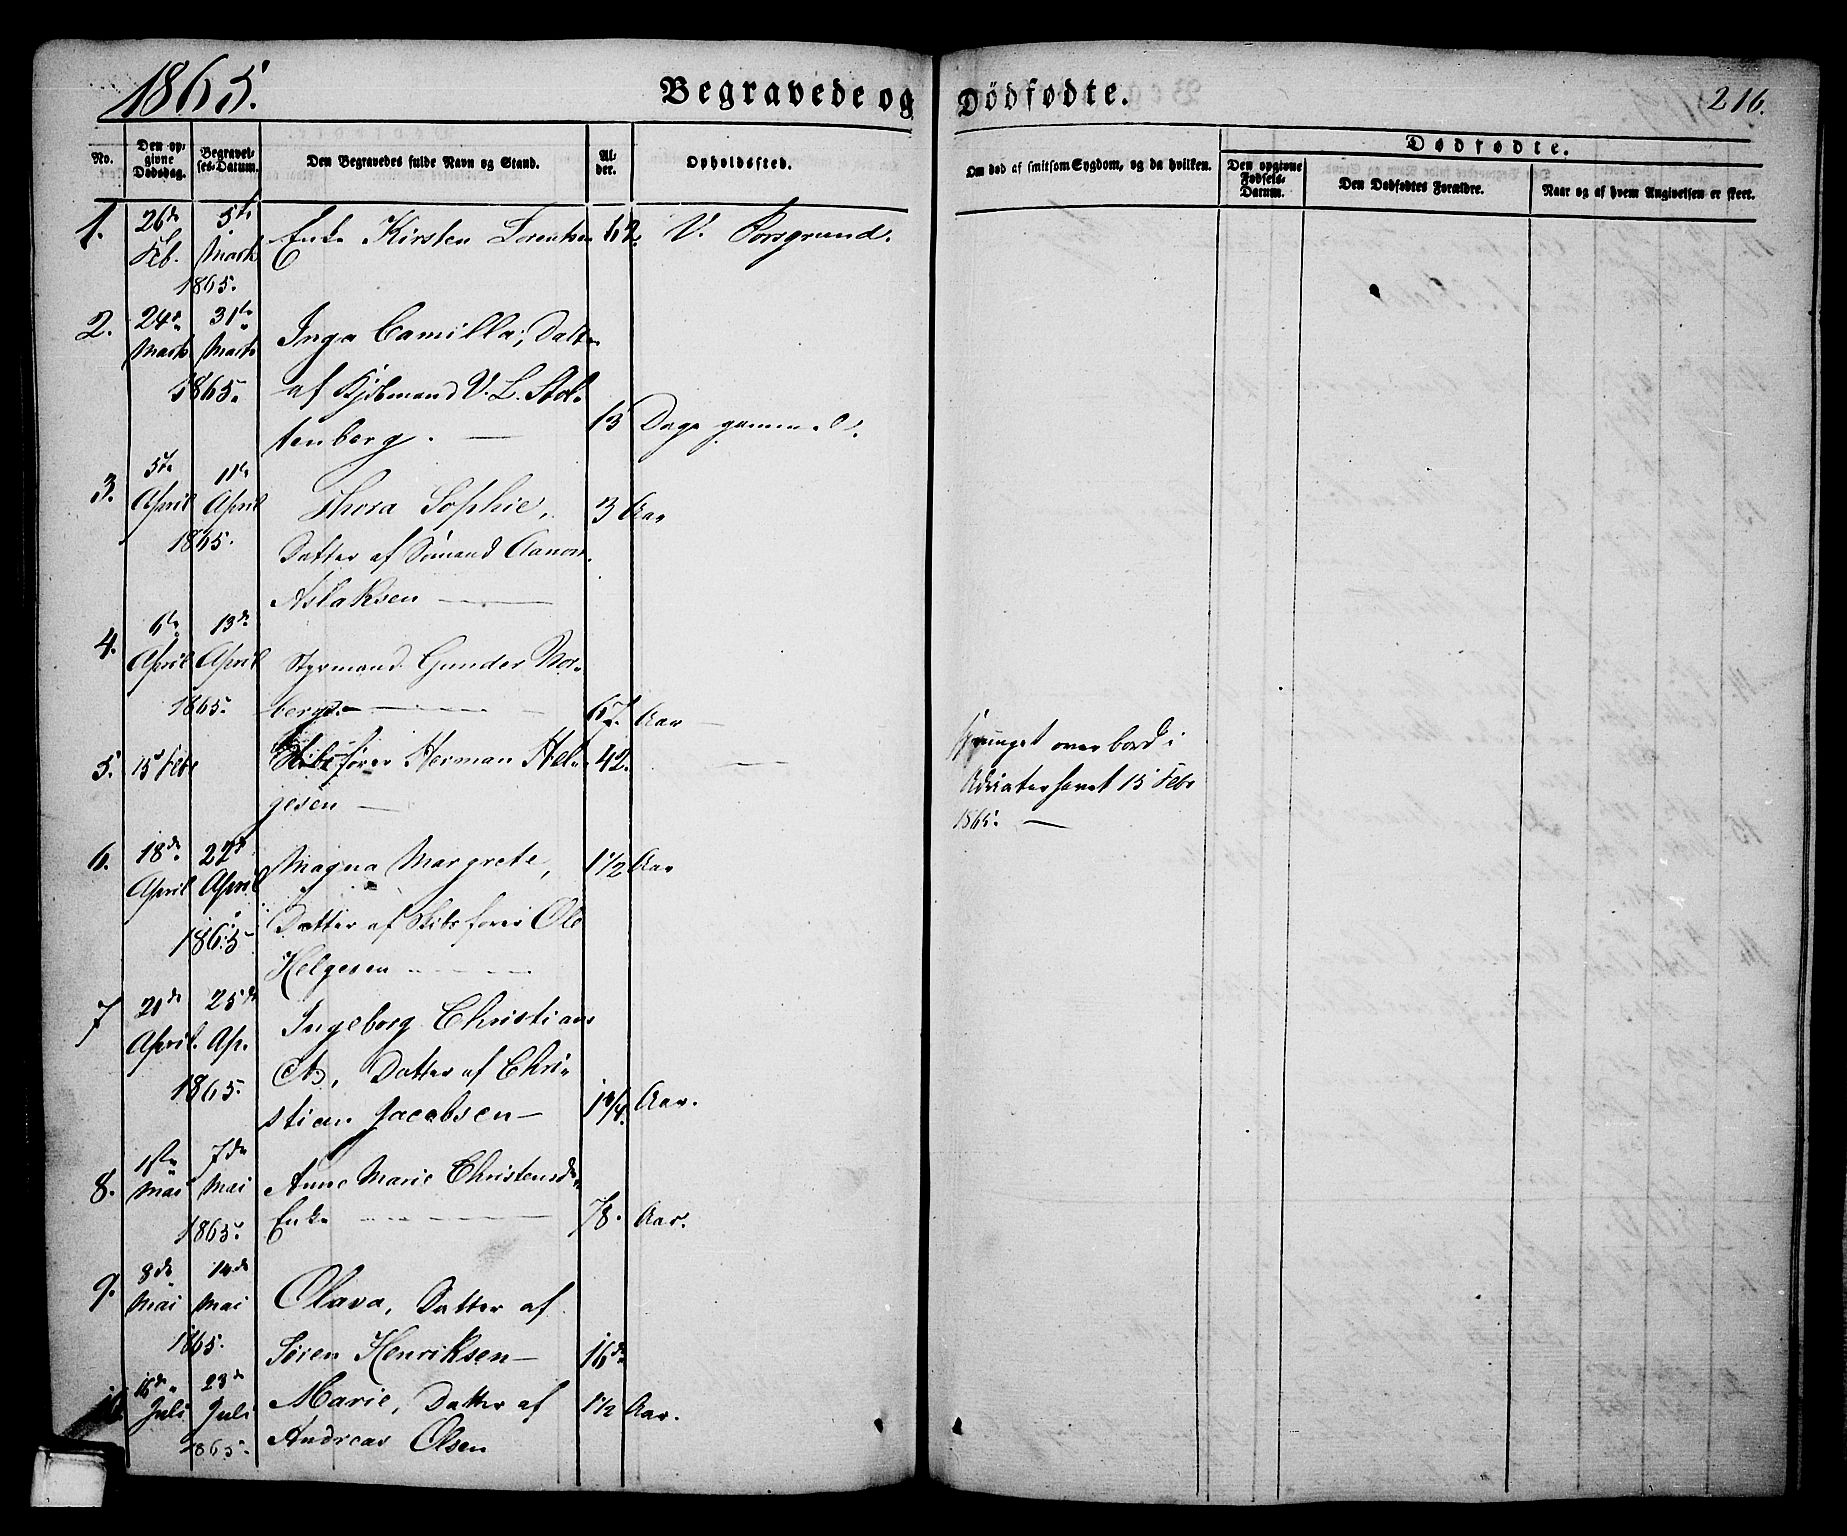 1865.
Begravede og Dödfødte.
216.
No.
Den op-
givne
Dödsdag.
Begravel-
ses-Datum.
Den Begravedes fulde Navn og Stand.
Al-
der.
Opholdssted.
Om död af smitsom Sygdom, og da hvilken.
Dödfødte.
Den opgivne
Fødsels-
Datum.
Den Dødfødtes Forældre.
Naar og af hvem Angivelsen er skeet.
1. 26de Feb. 5te Marts 1865. Enke Kirsten Lorentzen 62. V. Porsgrund.
2. 24de Marts 31te Marts 1865. Inga Camilla, Datter
af Kjöbmand V. L. Stol-
tenberg. — 13 Dage gammel.
3. 5te April 11te April 1865. Thora Sophie, 3 Aar
Datter af Sömand Aanon
Aslaksen —
4. 6te April 13de April 1865. Styrmand Gunder Nor-
berg. — 67. Aar —
5. 15 Feb Skibsfører Herman Hel- 42.
gesen —
Sprunget overbord i
Adriaterhavet 15 Febr
1865. —
6. 18de April 22de April 1865 Magna Margrete, 1 1/2 Aar
Datter af Skibsfører Ole
Helgesen —
7 21de April. 25de Ap. 1865. Ingeborg Christian
Datter af Chri-
stian Jacobsen — Aar.
8. 1ste Mai 7de Mai 1865. Anne Marie Christensd.
Enke — 78. Aar.
9. 8de Mai 14de Mai 1865. Olava, Datter af
Søren Henriksen — 16de
16de Juli 23de Juli 1865. Marie, Datter af 1 1/2 Aar.
Andreas Olsen